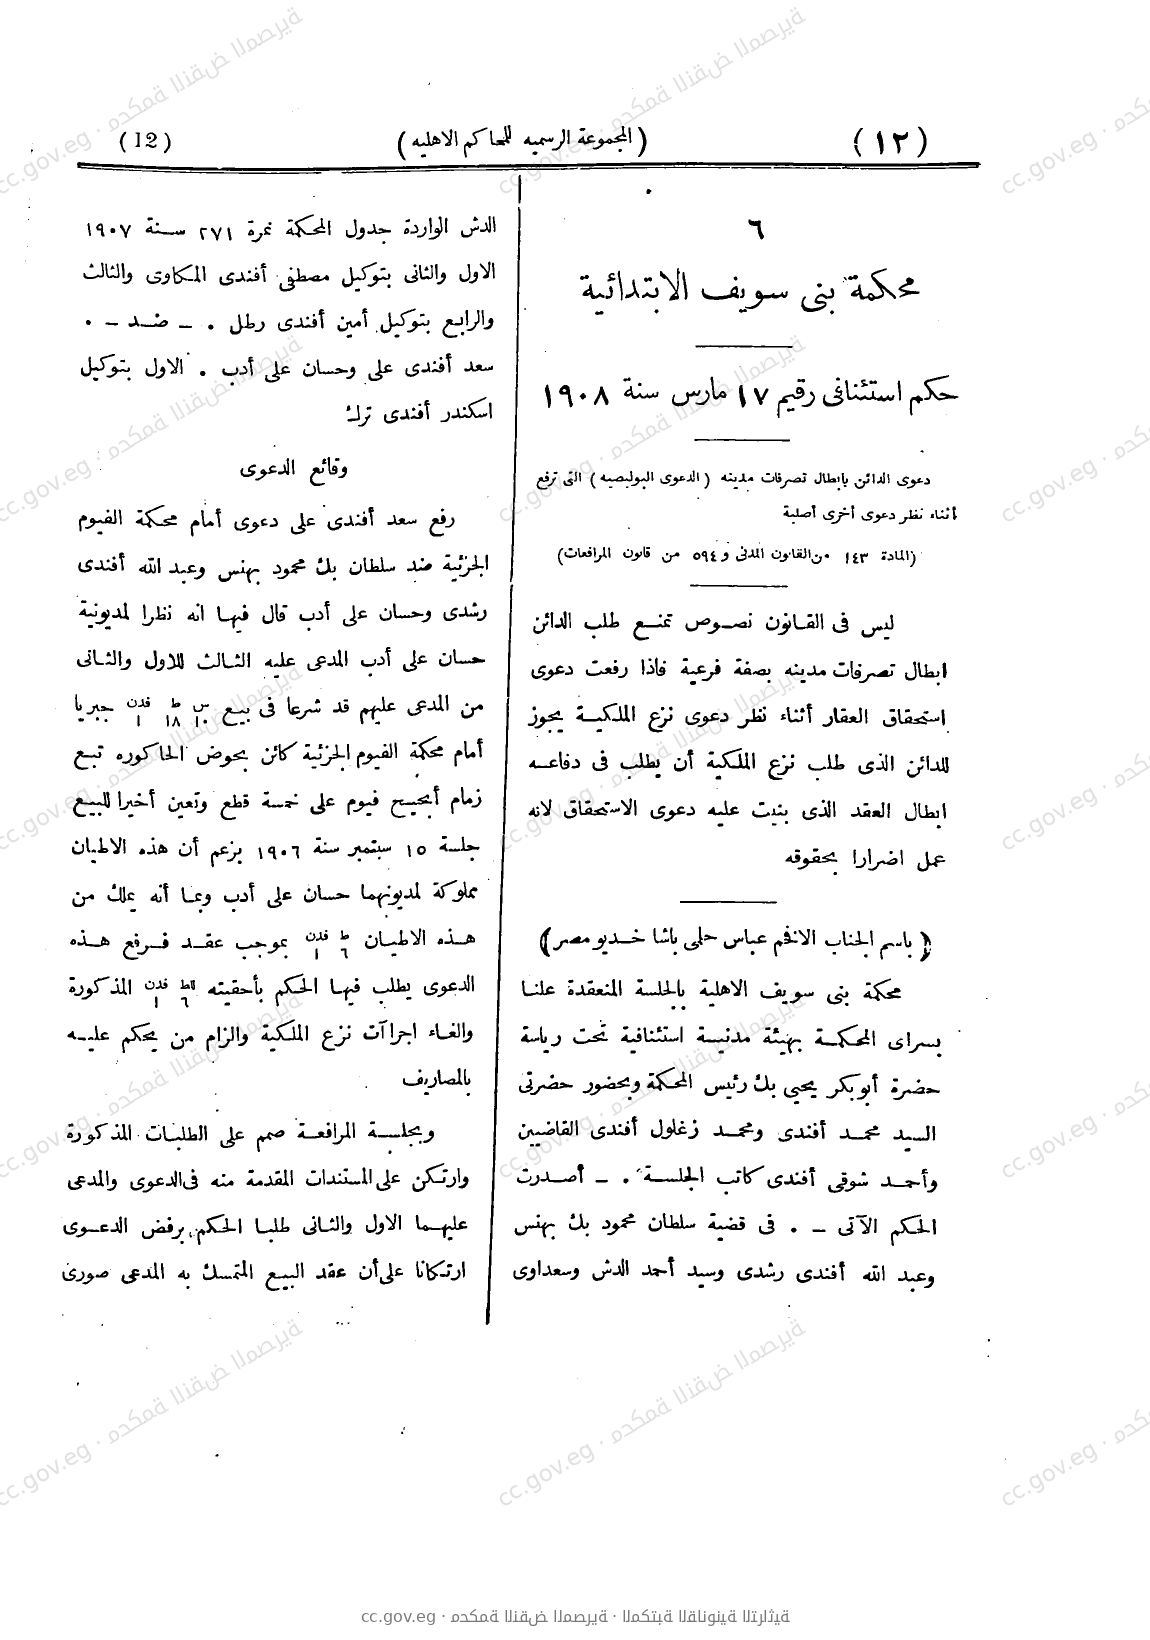 (١٢)
(المجموعة الرسميه للمحاكم الاهليه)
(12)
٦
محكمة بنى سويف الابتدائية
حكم استئنافى رقيم ١٧ مارس سنة ١٩٠٨
دعوى الدائن بابطال تصرفات مدينه (الدعوى البوليصيه) التى ترفع
أثناء نظر دعوى أخرى أصلية
(المادة ١٤٣ من القانون المدنى و ٥٩٤ من قانون المرافعات)
ليس فى القانون نصوص تمنع طلب الدائن
ابطال تصرفات مدينه بصفة فرعية فاذا رفعت دعوى
استحقاق العقار أثناء نظر دعوى نزع الملكية يجوز
للدائن الذى طلب نزع الملكية أن يطلب فى دفاعه
ابطال العقد الذى بنيت عليه دعوى الاستحقاق لانه
عمل اضرارا بحقوقه
(باسم الجناب الافخم عباس حلمى باشا خديو مصر)
محكمة بنى سويف الاهلية بالجلسة المنعقدة علنا
بسراى المحكمة بهيئة مدنية استئنافية تحت رياسة
حضرة أبو بكر يحيى بك رئيس المحكمة وبحضور حضرتى
السيد محمد أفندى ومحمد زغلول أفندى القاضيين
وأحمد شوقى أفندى كاتب الجلسة . ـ أصدرت
الحكم الآتى ـ . فى قضية سلطان محمود بك بهنس
وعبد الله أفندى رشدى وسيد أحمد الدش وسعداوى
الدش الواردة جدول المحكمة نمرة ٢٧١ سنة ١٩٠٧
الاول والثانى بتوكيل مصطفى أفندى المكاوى والثالث
والرابع بتوكيل أمين أفندى رطل . ـ ضد ـ .
سعد أفندى على وحسان على أدب . الاول بتوكيل
اسكندر أفندى ترك
وقائع الدعوى
رفع سعد أفندى على دعوى أمام محكمة الفيوم
الجزئية ضد سلطان بك محمود بهنس وعبد الله أفندى
رشدى وحسان على أدب قال فيها انه نظرا لمديونية
حسان على أدب المدعى عليه الثالث للاول والثانى
من المدعى عليهم قد شرعا فى بيع س ١٠ ط ١٨ فدن ١ جبريا
أمام محكمة الفيوم الجزئية كائن بحوض الحاكوره تبع
زمام أبجيج فيوم على خمسة قطع وتعين أخيرا للبيع
جلسة ١٥ سبتمبر سنة ١٩٠٦ بزعم أن هذه الاطيان
مملوكة لمديونهما حسان على أدب وبما أنه يملك من
هذه الاطيان ط ٦ فدن ١ بموجب عقد فرفع هذه
الدعوى يطلب فيها الحكم بأحقيته للط ٦ فدن ١ المذكورة
والغاء اجراآت نزع الملكية والزام من يحكم عليه
بالمصاريف
وبجلسة المرافعة صمم على الطلبات المذكورة
وارتكن على المستندات المقدمة منه فى الدعوى والمدعى
عليهما الاول والثانى طلبا الحكم برفض الدعوى
ارتكانا على أن عقد البيع المتمسك به المدعى صورى
cc.gov.eg · محكمة النقض المصرية · المكتبة القانونية التراثية